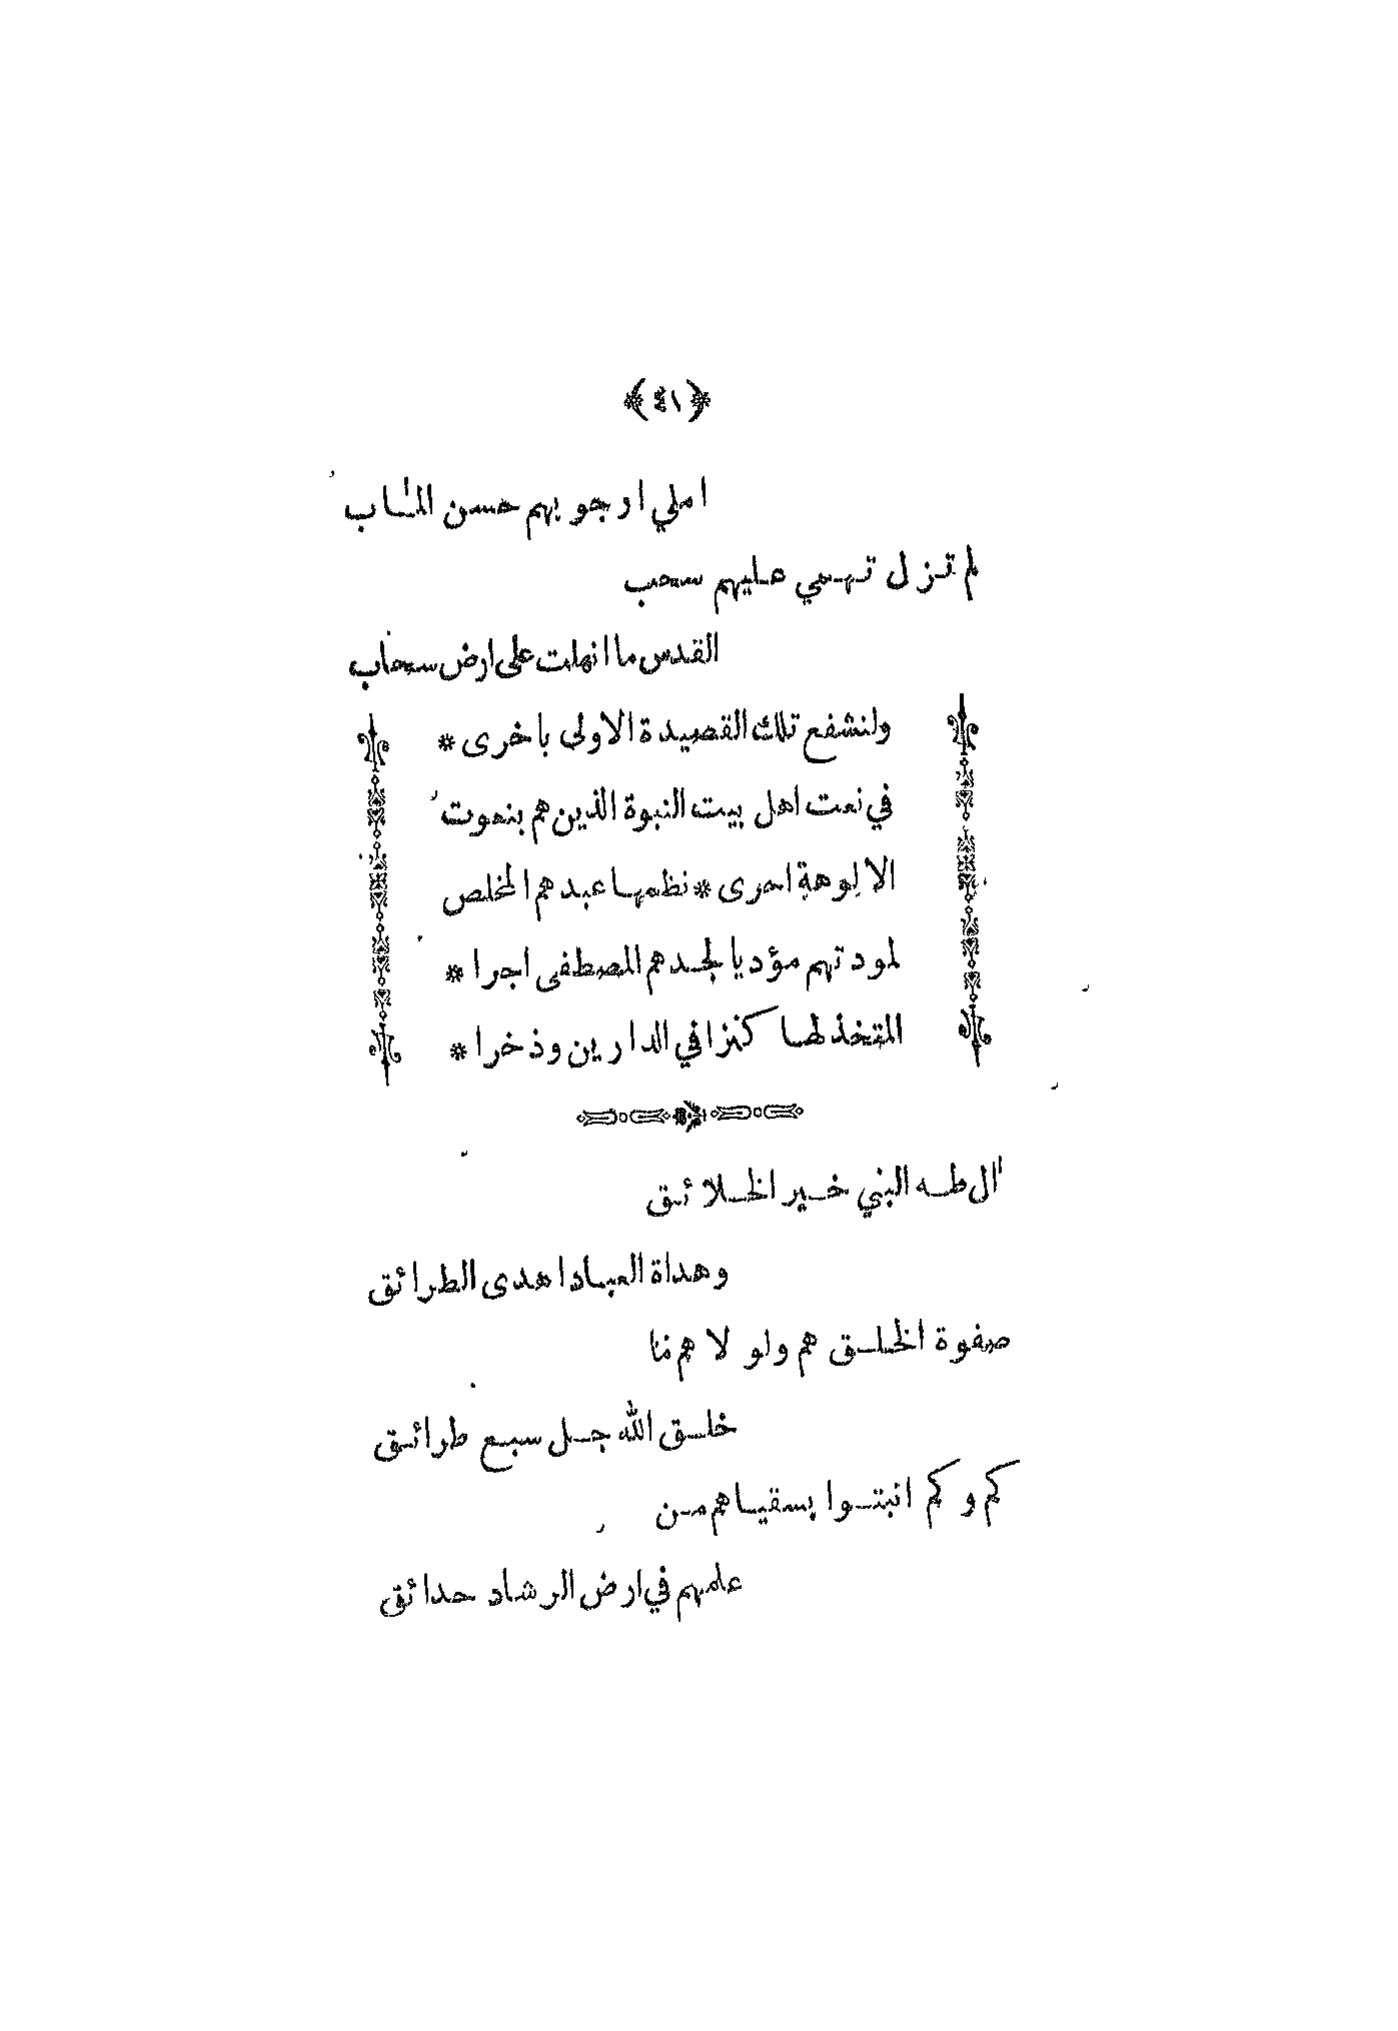 ﴿٤١﴾
املي ارجو بهم حسن المآب
لم تزل تهمي عليهم سحب
القدس ما انهلت على ارض سحاب
ولنشفع تلك القصيدة الاولى باخرى *
في نعت اهل بيت النبوة الذين هم بنعوت
الالوهة احرى * نظمها عبدهم المخلص
لمودتهم مؤديا لجدهم المصطفى اجرا *
المتخذ لها كنزا في الدارين وذخرا *
آل طه النبي خير الخلائق
وهداة العباد اهدى الطرائق
صفوة الخلق هم ولولا هم ما
خلق الله جل سبع طرائق
كم وكم انبتوا بسقياهم من
علمهم في ارض الرشاد حدائق